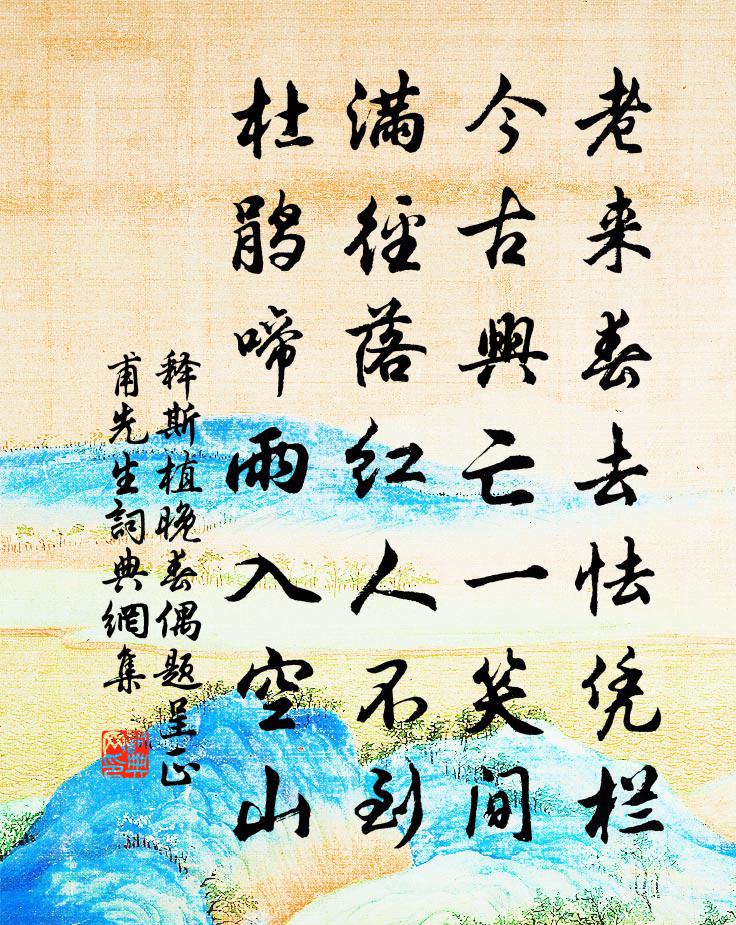 老来春去怯凭栏
今古興亡一笑间
满径落红人不到
杜鹃啼雨入空山
释斯植晚春偶题呈正
甫先生詞典網集